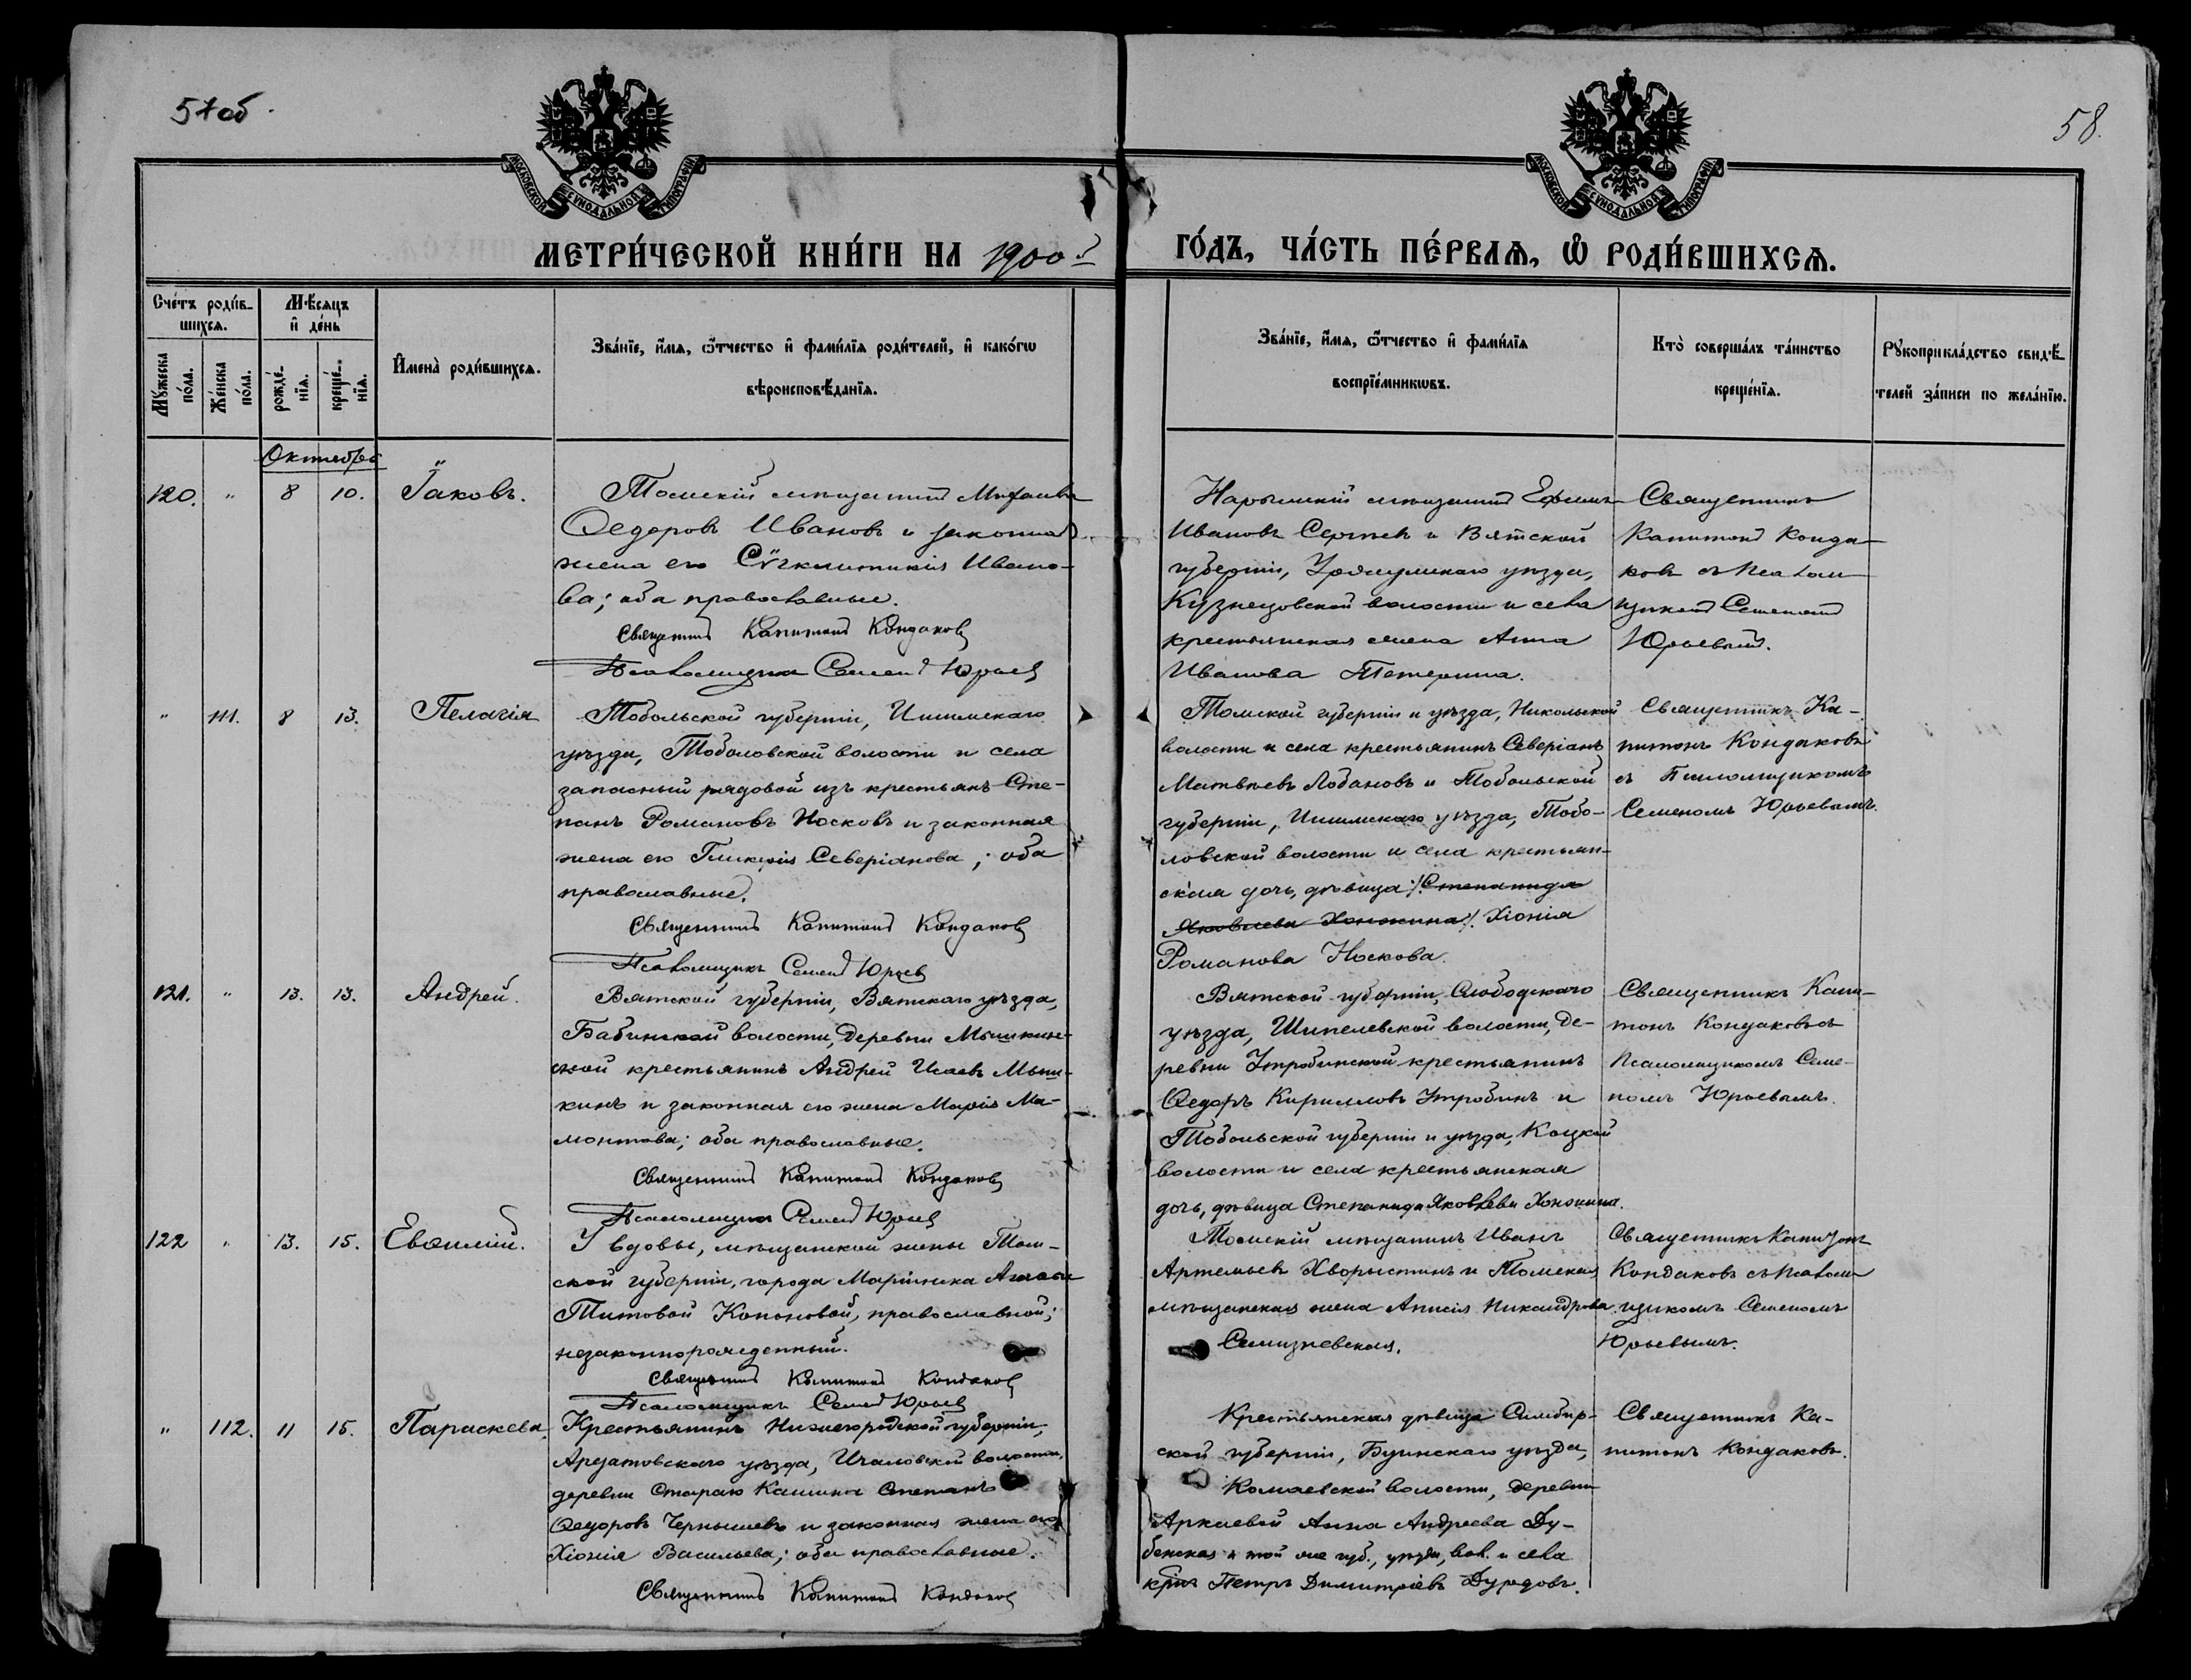 57об.
58.
МОСКОВСКОЙ СѴНОДАЛЬНОЙ ТИПОГРАФІИ
МОСКОВСКОЙ СѴНОДАЛЬНОЙ ТИПОГРАФІИ
МЕТРИ́ЧЕСКОЙ КНИ́ГИ НА 1900й
ГО́ДЪ, ЧА́СТЬ ПЕ́РВАѦ, Ѽ РОДИ́ВШИХСѦ.
Сче́тъ роди́в-
шихсѧ.
Мѣ́сѧцъ
и҆ де́нь
Мꙋ́жеска по́ла.
Же́нска по́ла.
рожде́-нїѧ.
креще́-нїѧ.
И҆мена̀ роди́вшихсѧ.
Зва́нїе, и҆́мѧ, ѻ҆́тчество и҆ фами́лїѧ роди́телей, и҆ како́гѡ
вѣроисповѣ́данїѧ.
Зва́нїе, и҆́мѧ, ѻ҆́тчество и҆ фами́лїѧ
воспрїе́мникѡвъ.
Кто̀ соверша́лъ та́инство
креще́нїѧ.
Рꙋкоприкла́дство свидѣ́-
телей за́писи по жела́нїю.
Октябрь
120. " 8 10. Іаковъ.
Томскій мѣщанинъ Михаилъ
Ѳедоровъ Ивановъ и законная
жена его Сѵгклитикія Ивано-
ва; оба православные.
Священникъ Капитонъ Кондаковъ
Псаломщикъ Семенъ Юрьевъ
Нарымскій мѣщанинъ Ефимъ
Ивановъ Сергѣевъ и Вятской
губерніи, Уржумскаго уѣзда,
Кузнецовской волости и села
крестьянская жена Анна
Иванова Тетерина.
Священникъ
Капитонъ Конда-
ковъ съ Псалом-
щикомъ Семеномъ
Юрьевымъ.
" 111. 8 13. Пелагія
Тобольской губерніи, Ишимскаго
уѣзда, Тоболовской волости и села
запасный рядовой изъ крестьянъ Сте-
панъ Романовъ Носковъ и законная
жена его Гликерія Северіанова; оба
православные.
Священникъ Капитонъ Кондаковъ
Псаломщикъ Семенъ Юрьевъ
Томской губерніи и уѣзда, Никольской
волости и села крестьянинъ Северіанъ
Матвѣевъ Лобановъ и Тобольской
губерніи, Ишимскаго уѣзда, Тобо-
ловской волости и села крестьян-
ская дочь, дѣвица /:Степанида
Яковлева Хонжина:/ Хіонія
Романова Носкова.
Священникъ Ка-
питонъ Кондаковъ
съ Псаломщикомъ
Семеномъ Юрьевымъ.
121. " 13. 13. Андрей.
Вятской губерніи, Вятскаго уѣзда,
Бабинской волости, деревни Мышкин-
ской крестьянинъ Андрей Исаевъ Мыш-
кинъ и законная его жена Марія Ма-
монтова; оба православные.
Священникъ Капитонъ Кондаковъ
Псаломщикъ Семенъ Юрьевъ
Вятской губерніи, Слободскаго
уѣзда, Шипелевской волости, де-
ревни Утробинской крестьянинъ
Ѳедоръ Кирилловъ Утробинъ и
Тобольской губерніи и уѣзда, Коцкой
волости и села крестьянская
дочь, дѣвица Степанида Яковлева
Священникъ Капи-
тонъ Кондаковъ съ
Псаломщикомъ Семе-
номъ Юрьевымъ.
122 " 13. 15. Евѳимій.
У вдовы, мѣщанской жены Том-
ской губерніи, города Маріинска
Титовой Кононовой, православной;
незаконнорожденный.
Священникъ Капитонъ Кондаковъ
Псаломщикъ Семенъ Юрьевъ
Томскій мѣщанинъ Иванъ
Артемьевъ Хворыстинъ и Томская
мѣщанская жена Анисія Никандрова
Священникъ Капитонъ
Кондаковъ съ Псалом-
щикомъ Семеномъ
Юрьевымъ.
" 112. 11 15. Параскева.
Крестьянинъ Нижегородской губерніи,
Ардатовскаго уѣзда, Ичаловской волости,
деревни Стараго Степанъ
Ѳедоровъ Чернышевъ и законная жена его
Хіонія Васильева; оба православные.
Священникъ Капитонъ Кондаковъ
Крестьянская дѣвица Симбир-
ской губерніи, Буинскаго уѣзда,
волости, деревни
Анна Андреева Ду-
бенская и той же губ., уѣзда, вол. и села
крнъ Петръ Димитріевъ
Священникъ Ка-
питонъ Кондаковъ.